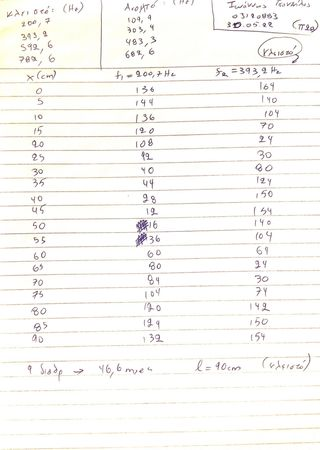 κλειστό: (Hz)
200,7
393,2
592,6
782,6
Ανοιχτό: (Hz)
109,9
303,4
483,3
682,6
Ιωάννης
03120883
30.05.22
κλειστό
x(cm) f1 = 200,7 Hz f2 = 393,2 Hz
0 136 164
5 144 140
10 136 104
15 120 70
20 108 24
25 92 30
30 40 80
35 44 124
40 28 150
45 12 154
50 16 140
55 36 104
60 60 64
65 80 24
70 84 30
75 104 74
80 120 142
85 124 150
90 132 154
9 διαδρ → 46,6 l = 90cm (κλειστό)